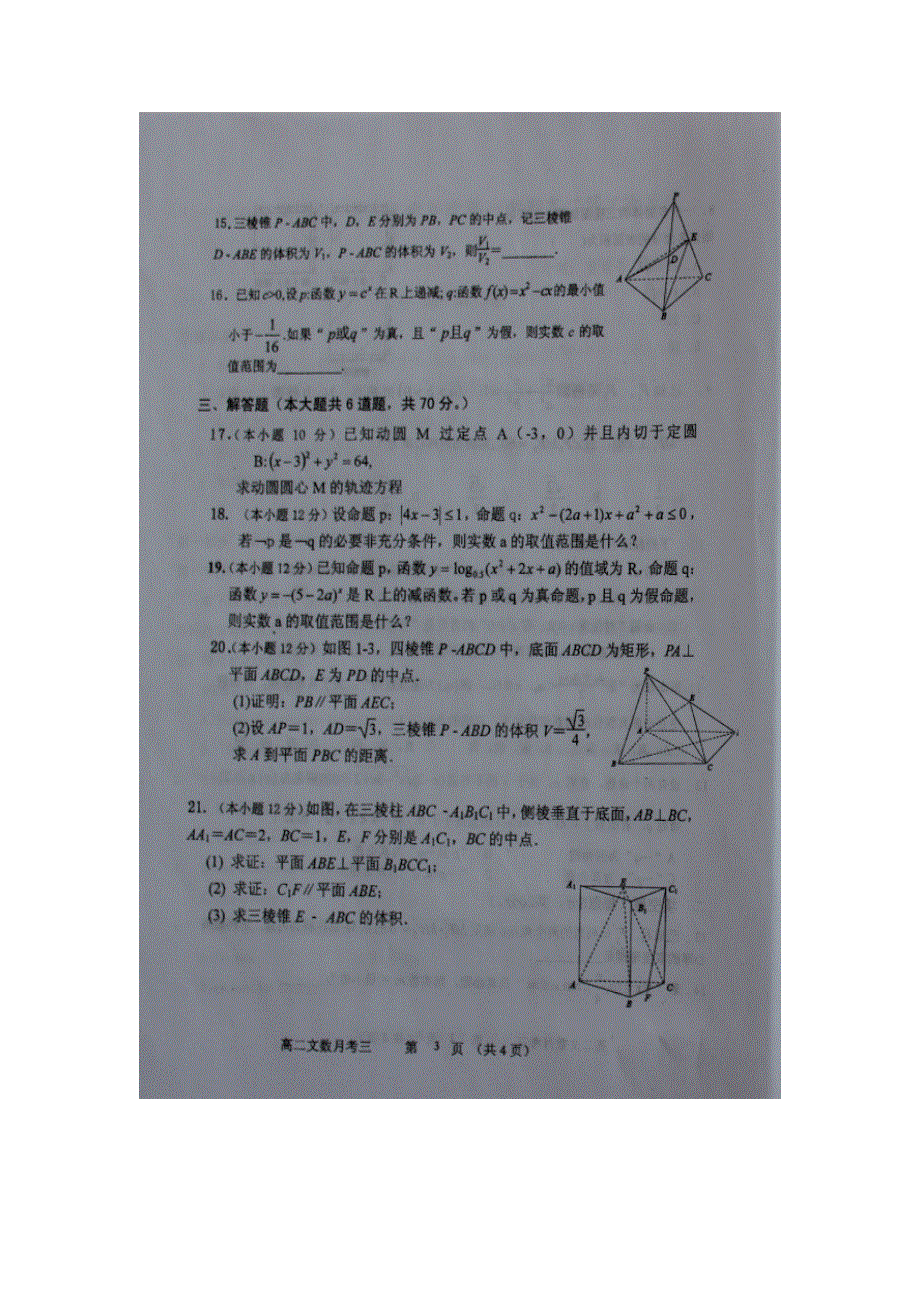 15.三棱锥 P - ABC 中，D，E 分别为 PB，PC 的中点，记三棱锥
D - ABE 的体积为 V₁，P - ABC 的体积为 V₂，则V₁/V₂=________.
16．已知 c>0,设 p:函数 y=cˣ 在 R 上递减; q:函数 f(x)=x²-cx 的最小值
小于-1/16.如果“p或q”为真，且“p且q”为假，则实数 c 的取
值范围为________.
三、解答题（本大题共 6 道题，共 70 分。）
17.(本小题 10 分) 已知动圆 M 过定点 A（-3，0）并且内切于定圆
B:(x-3)²+y²=64,
求动圆圆心 M 的轨迹方程
18. （本小题 12 分）设命题 p：|4x-3|≤1，命题 q：x²-(2a+1)x+a²+a≤0，
若¬p 是¬q 的必要非充分条件，则实数 a 的取值范围是什么？
19.(本小题 12 分) 已知命题 p，函数 y=log₀.₅(x²+2x+a) 的值域为 R，命题 q：
函数 y=-(5-2a)ˣ 是 R 上的减函数。若 p 或 q 为真命题，p 且 q 为假命题，
则实数 a 的取值范围是什么？
20.(本小题 12 分) 如图 1-3，四棱锥 P -ABCD 中，底面 ABCD 为矩形，PA⊥
平面 ABCD，E 为 PD 的中点．
(1)证明：PB∥平面 AEC;
(2)设 AP=1，AD=√3，三棱锥 P - ABD 的体积 V=√3/4，
求 A 到平面 PBC 的距离．
21. （本小题 12 分）如图，在三棱柱 ABC -A₁B₁C₁ 中，侧棱垂直于底面，AB⊥BC，
AA₁=AC=2，BC=1，E，F 分别是 A₁C₁，BC 的中点．
(1) 求证：平面 ABE⊥平面 B₁BCC₁;
(2) 求证：C₁F∥平面 ABE;
(3) 求三棱锥 E - ABC 的体积．
P
E
D
A
C
B
P
E
A
B
C
A₁
E
C₁
B₁
A
C
B
F
高二文数月考三 第 3 页 （共 4 页）